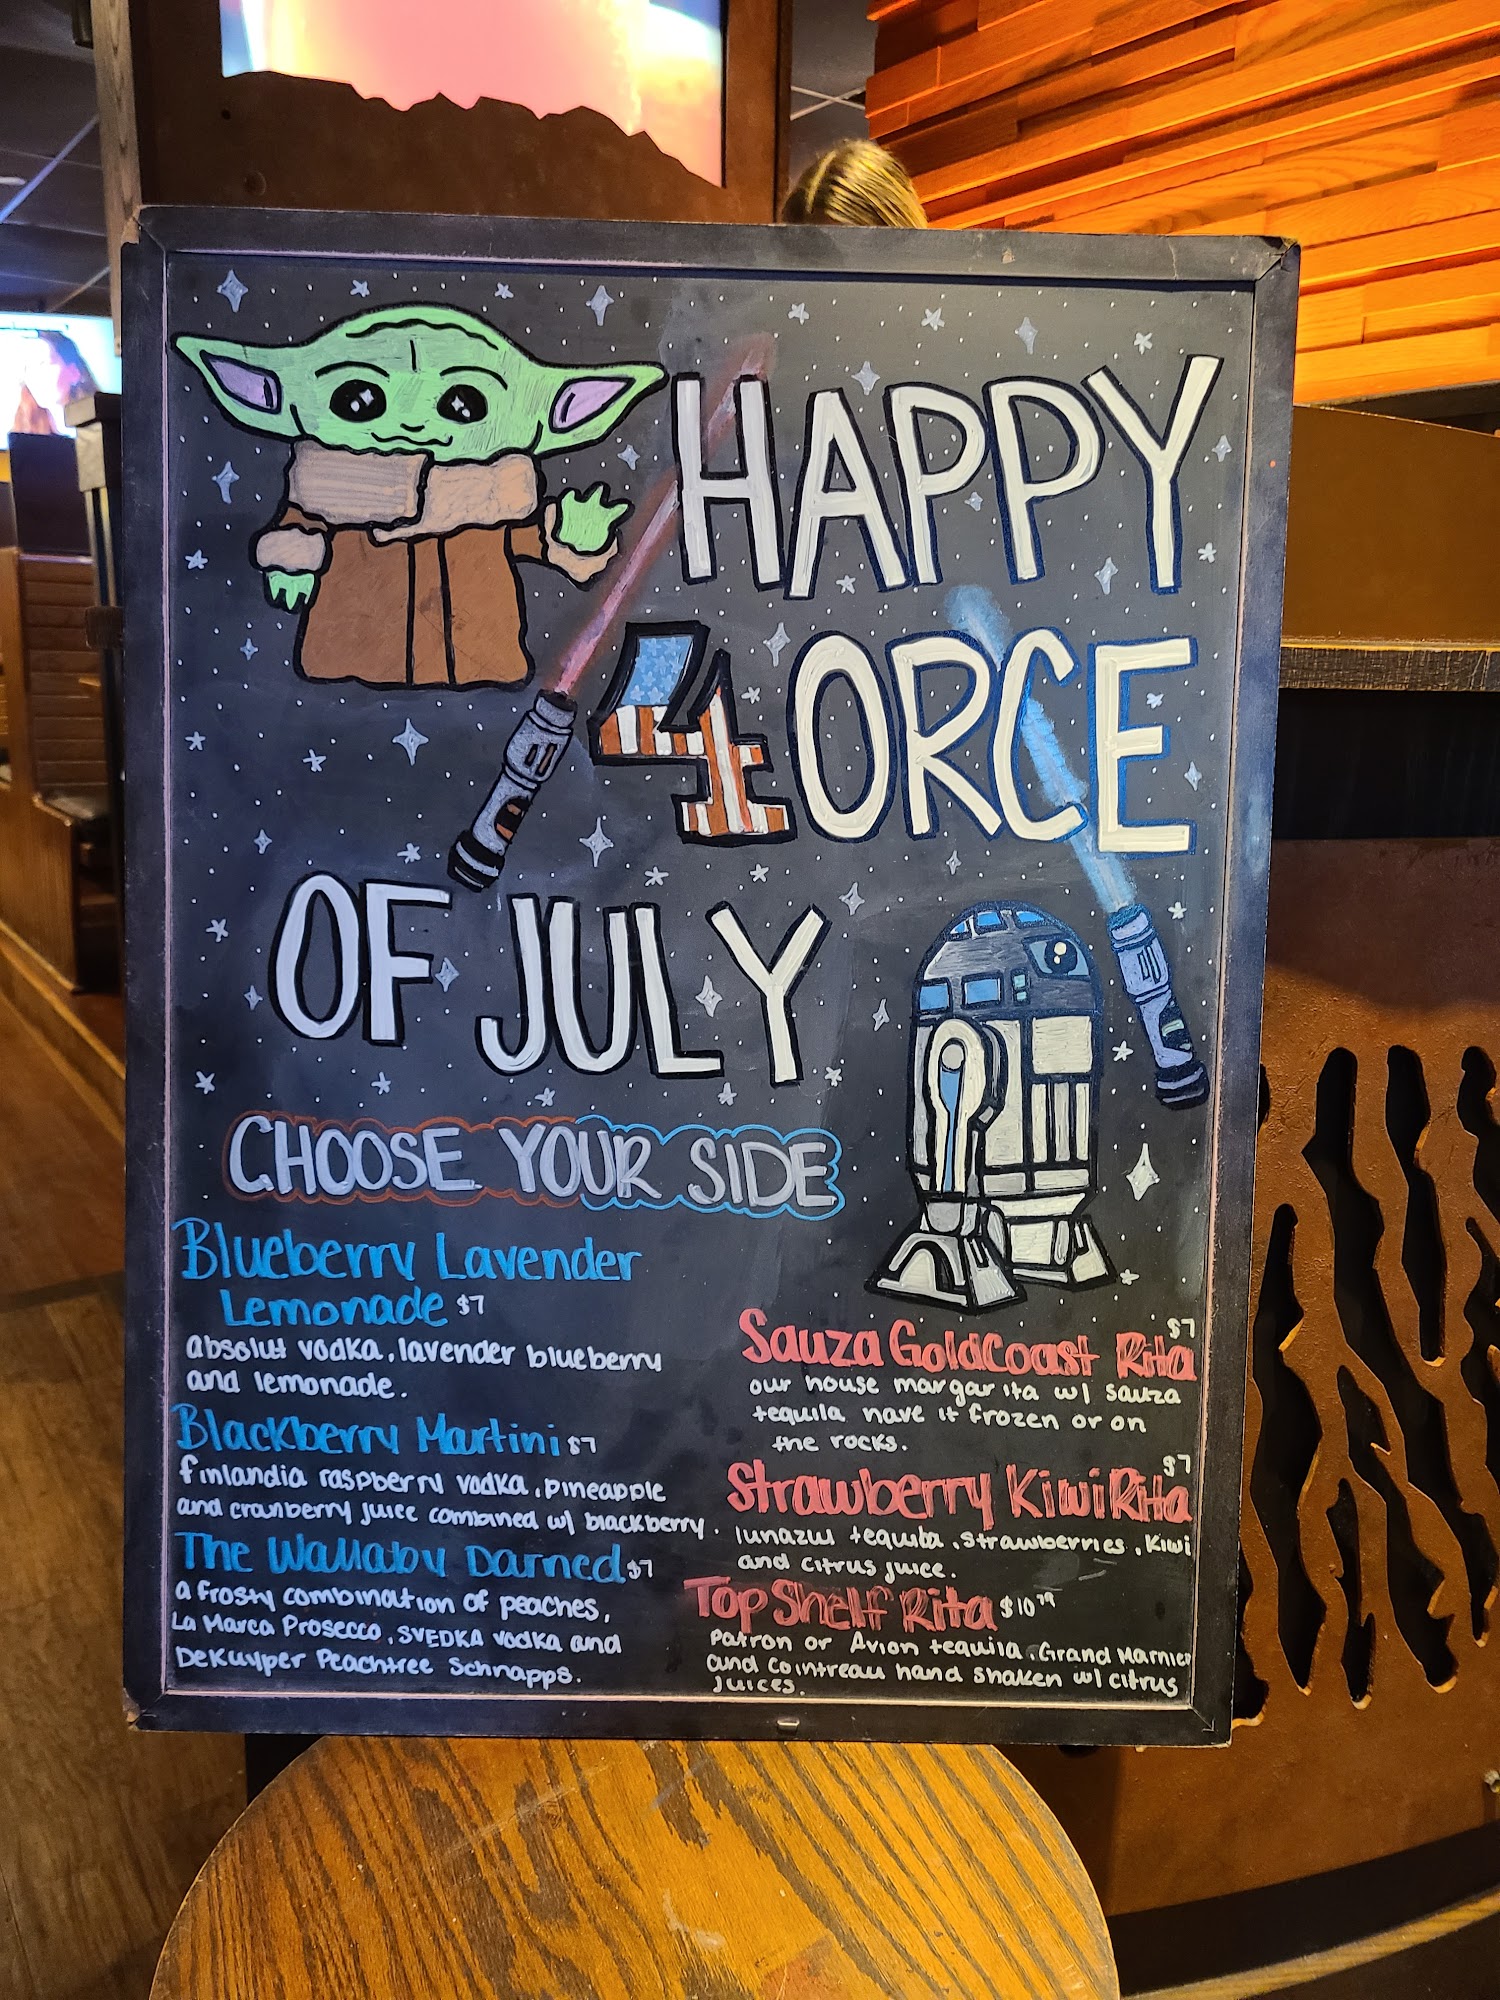 HAPPY
4ORCE
OF JULY
CHOOSE YOUR SIDE
Blueberry Lavender
Lemonade $7
absolut vodka, lavender blueberry
and lemonade.
Blackberry Martini $7
finlandia raspberry vodka, pineapple
and cranberry juice combined w/ blackberry.
The Wallaby Darned $7
a frosty combination of peaches,
La Marca Prosecco, SVEDKA vodka and
DeKuyper Peachtree Schnapps.
Sauza GoldCoast Rita $7
our house margarita w/ sauza
tequila have it frozen or on
the rocks.
Strawberry Kiwi Rita $7
lunazul tequila, strawberries, kiwi
and citrus juice.
Top Shelf Rita $10.79
Patron or Avion tequila, Grand Marnier
and Cointreau hand shaken w/ citrus
juices.